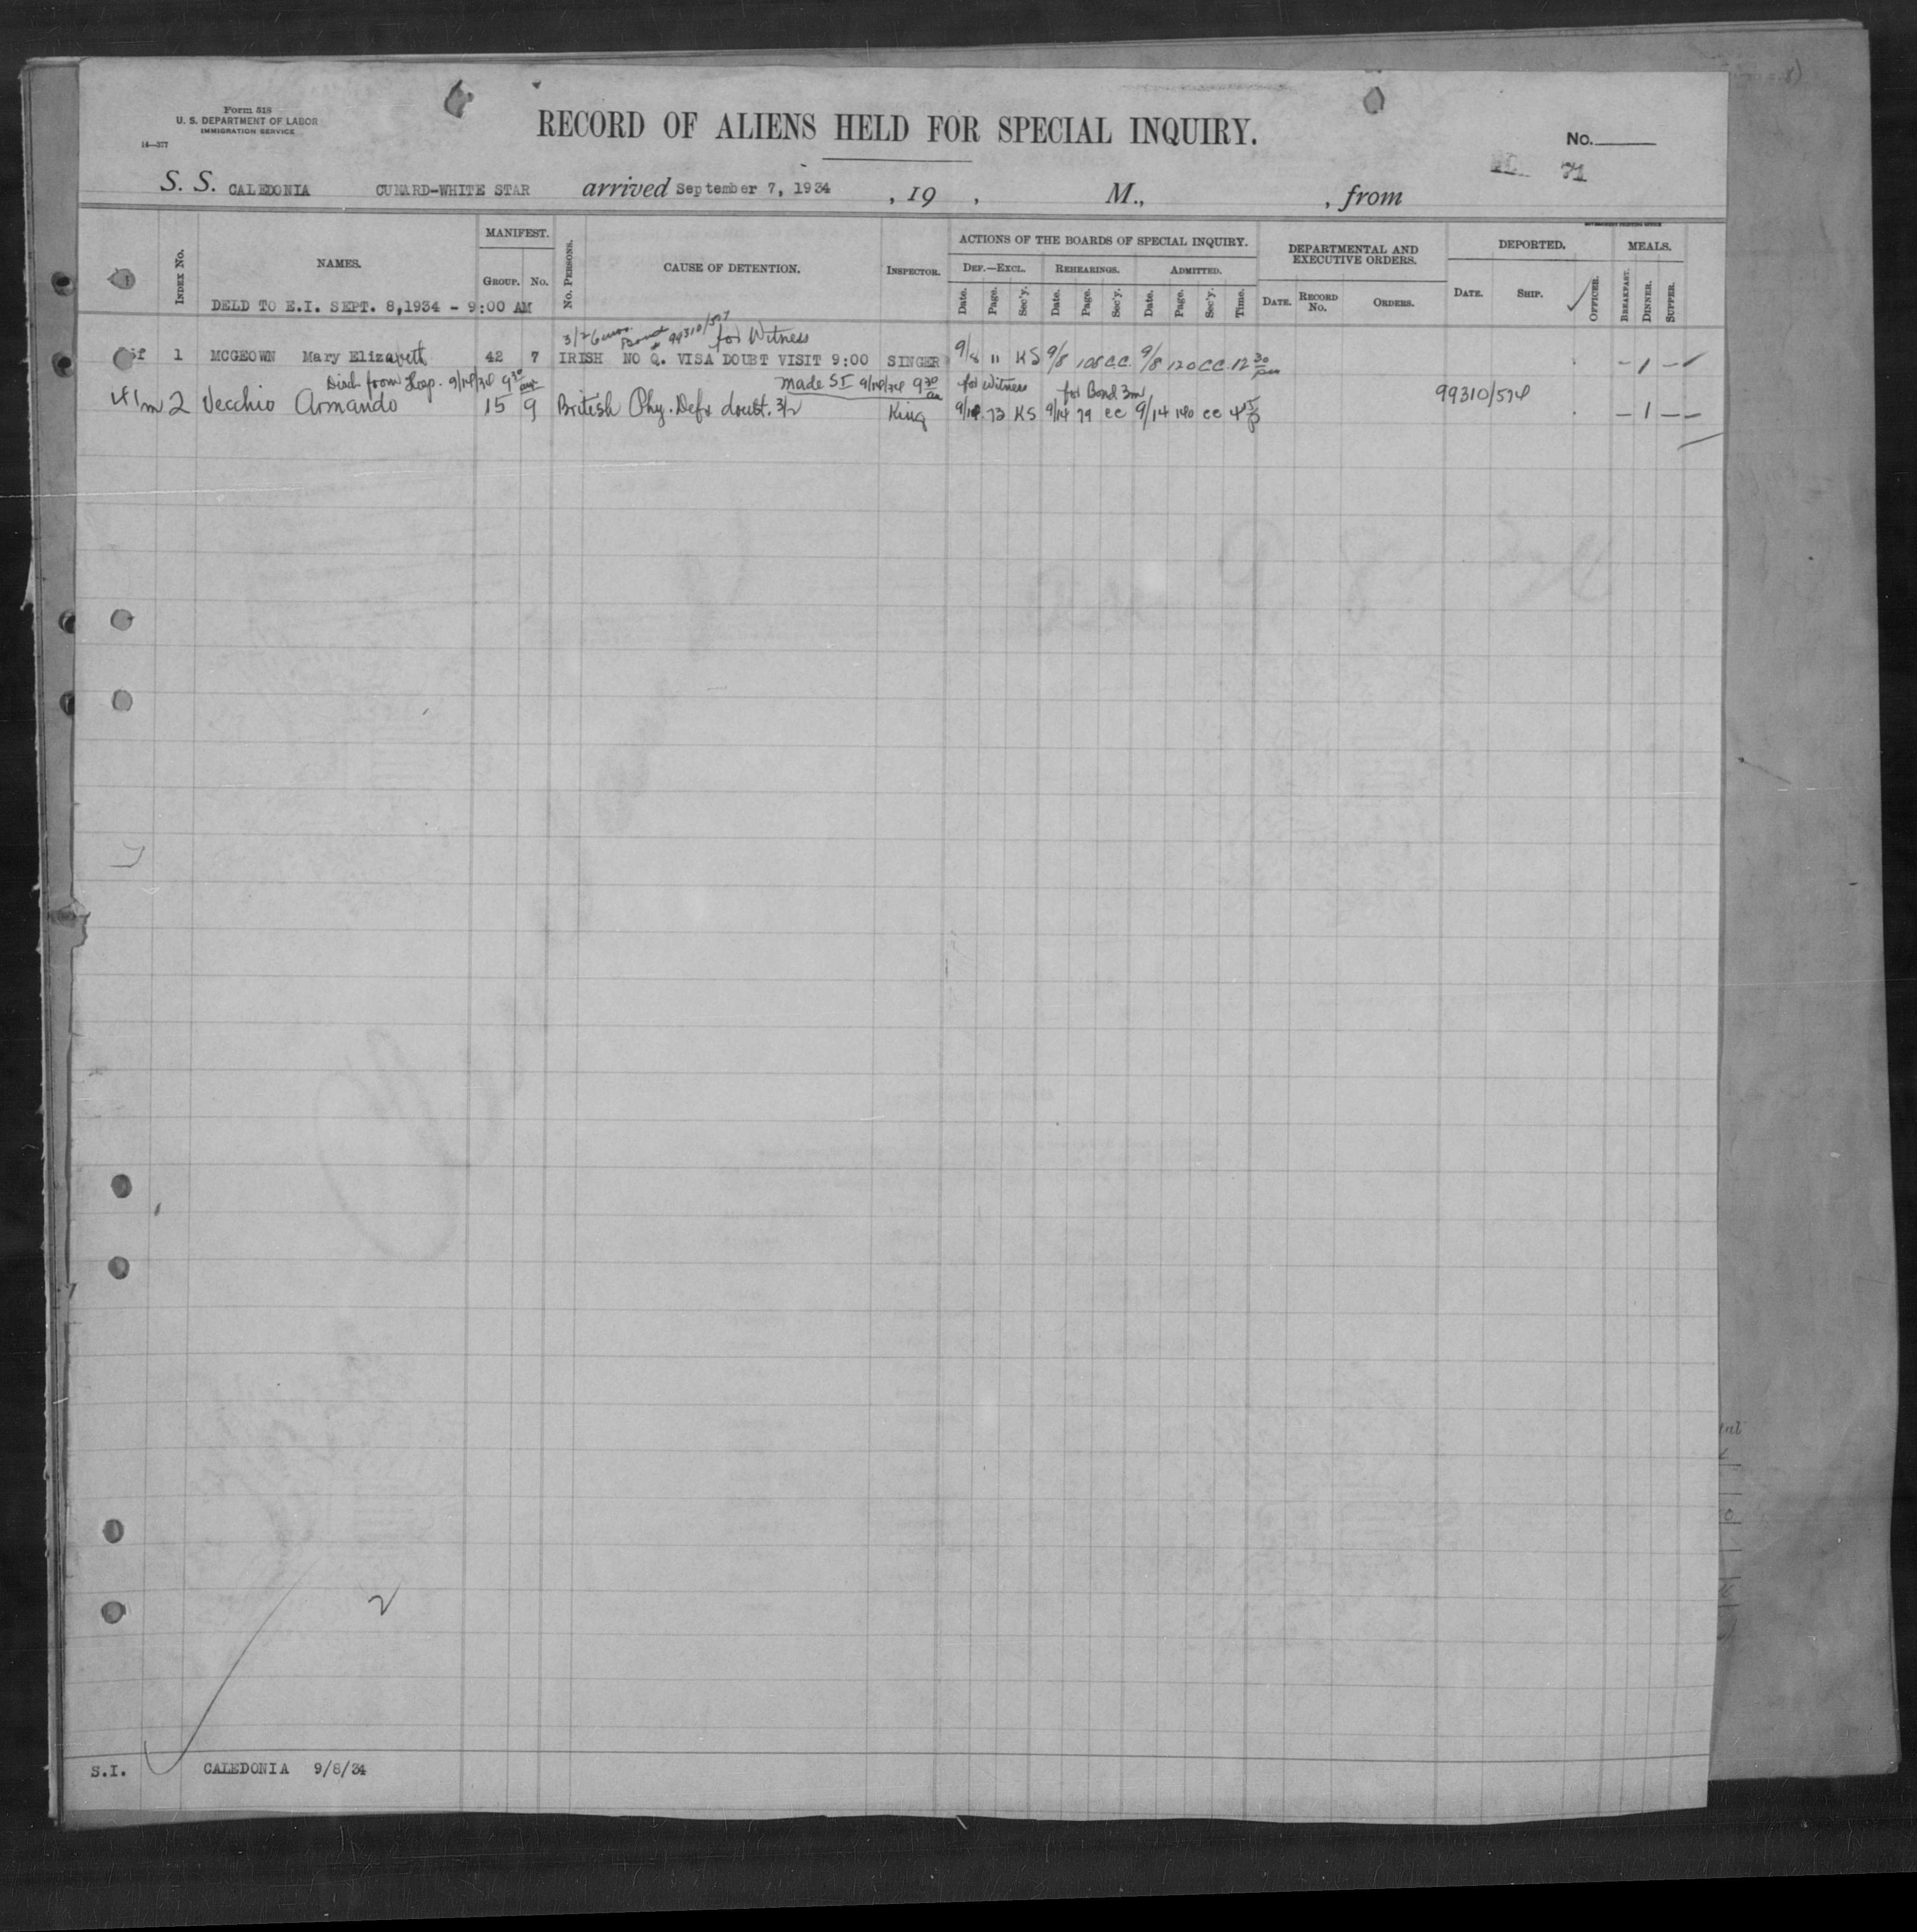 Form 518
U. S. DEPARTMENT OF LABOR
IMMIGRATION SERVICE
14—377
RECORD OF ALIENS HELD FOR SPECIAL INQUIRY.
No.
71
S. S. CALEDONIA CUNARD-WHITE STAR arrived September 7, 1934 , 19 , M., , from
GOVERNMENT PRINTING OFFICE
INDEX No. NAMES. MANIFEST. GROUP. No. No. PERSONS. CAUSE OF DETENTION. INSPECTOR. ACTIONS OF THE BOARDS OF SPECIAL INQUIRY. DEPARTMENTAL AND EXECUTIVE ORDERS. DEPORTED. MEALS.
DEF.—EXCL. REHEARINGS. ADMITTED.
Date. Page. Sec'y. Date. Page. Sec'y. Date. Page. Sec'y. Time. DATE. RECORD No. ORDERS. DATE. SHIP. OFFICER. BREAKFAST. DINNER. SUPPER.
DELD TO E.I. SEPT. 8,1934 - 9:00 AM
3/26mos. Bond # 99310/507 for Witness
1 MCGEOWN Mary Elizabeth 42 7 IRISH NO Q. VISA DOUBT VISIT 9:00 SINGER 9/8 11 KS 9/8 108 C.C. 9/8 120 CC. 12 30 pm – 1 –
Disch from Hosp. 9/14/34 9 30 am made SI 9/14/34 9 30 am for Witness for Bond 3m 99310/574
2 Vecchio Armando 15 9 British Phy. Defx doubt. 3/2 King 9/14 73 KS 9/14 79 CC 9/14 140 CC 4 15 p – 1 –
2
S.I. CALEDONIA 9/8/34